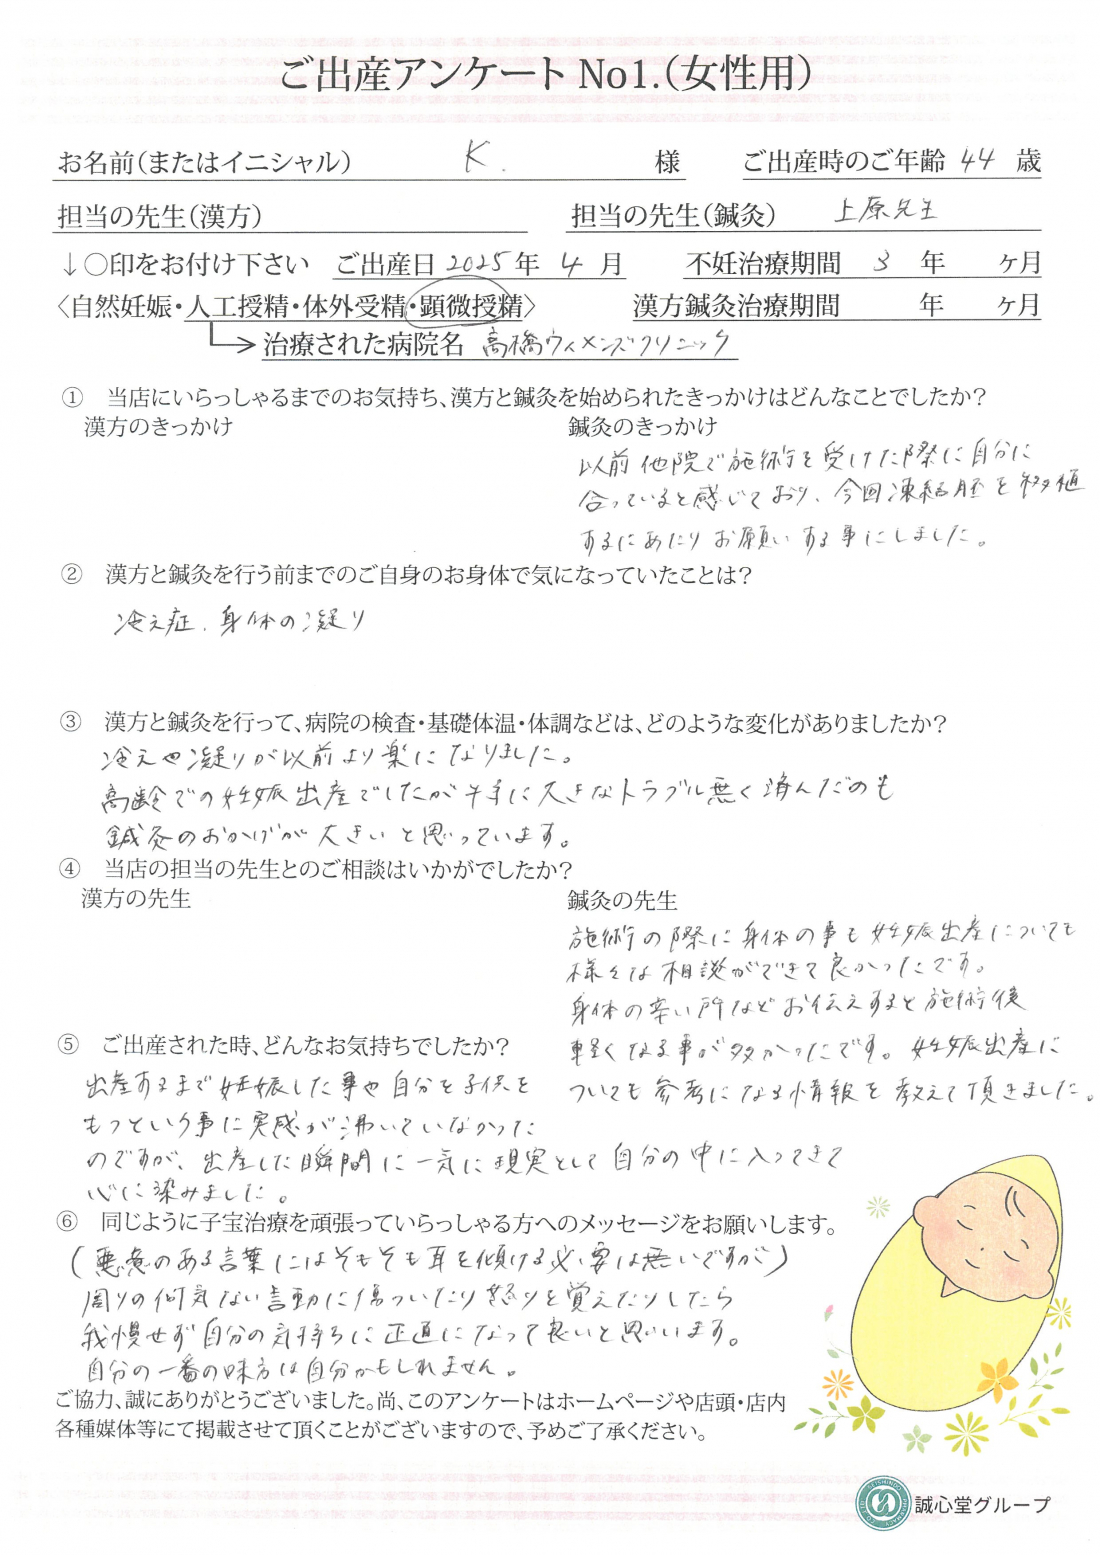 ご出産アンケート No1.（女性用）
お名前（またはイニシャル） K. 様 ご出産時のご年齢 44 歳
担当の先生（漢方） 担当の先生（鍼灸） 上原先生
↓〇印をお付け下さい ご出産日 2025 年 4 月 不妊治療期間 3 年 ヶ月
〈自然妊娠・人工授精・体外受精・顕微授精〉 漢方鍼灸治療期間 年 ヶ月
治療された病院名 高橋ウィメンズクリニック
① 当店にいらっしゃるまでのお気持ち、漢方と鍼灸を始められたきっかけはどんなことでしたか？
漢方のきっかけ
鍼灸のきっかけ
以前他院で施術を受けた際に自分に
合っていると感じており、今回凍結胚を移植
するにあたりお願いする事にしました。
② 漢方と鍼灸を行う前までのご自身のお身体で気になっていたことは？
冷え症、身体の凝り
③ 漢方と鍼灸を行って、病院の検査・基礎体温・体調などは、どのような変化がありましたか？
冷えや凝りが以前より楽になりました。
高齢での妊娠出産でしたが幸いに大きなトラブル無く済んだのも
鍼灸のおかげが大きいと思っています。
④ 当店の担当の先生とのご相談はいかがでしたか？
漢方の先生
鍼灸の先生
施術の際に身体の事も妊娠出産についても
様々な相談ができて良かったです。
身体の辛い所などお伝えすると施術後
軽くなる事が多かったです。妊娠出産に
ついても参考になる情報を教えて頂きました。
⑤ ご出産された時、どんなお気持ちでしたか？
出産するまで妊娠した事や自分を子供を
もつという事に実感が沸いていなかった
のですが、出産した瞬間に一気に現実として自分の中に入ってきて
心に染みました。
⑥ 同じように子宝治療を頑張っていらっしゃる方へのメッセージをお願いします。
（悪意のある言葉にはそもそも耳を傾ける必要は無いですが）
周りの何気ない言動に傷ついたり怒りを覚えたりしたら
我慢せず自分の気持ちに正直になって良いと思います。
自分の一番の味方は自分かもしれません。
ご協力、誠にありがとうございました。尚、このアンケートはホームページや店頭・店内
各種媒体等にて掲載させて頂くことがございますので、予めご了承ください。
誠心堂グループ